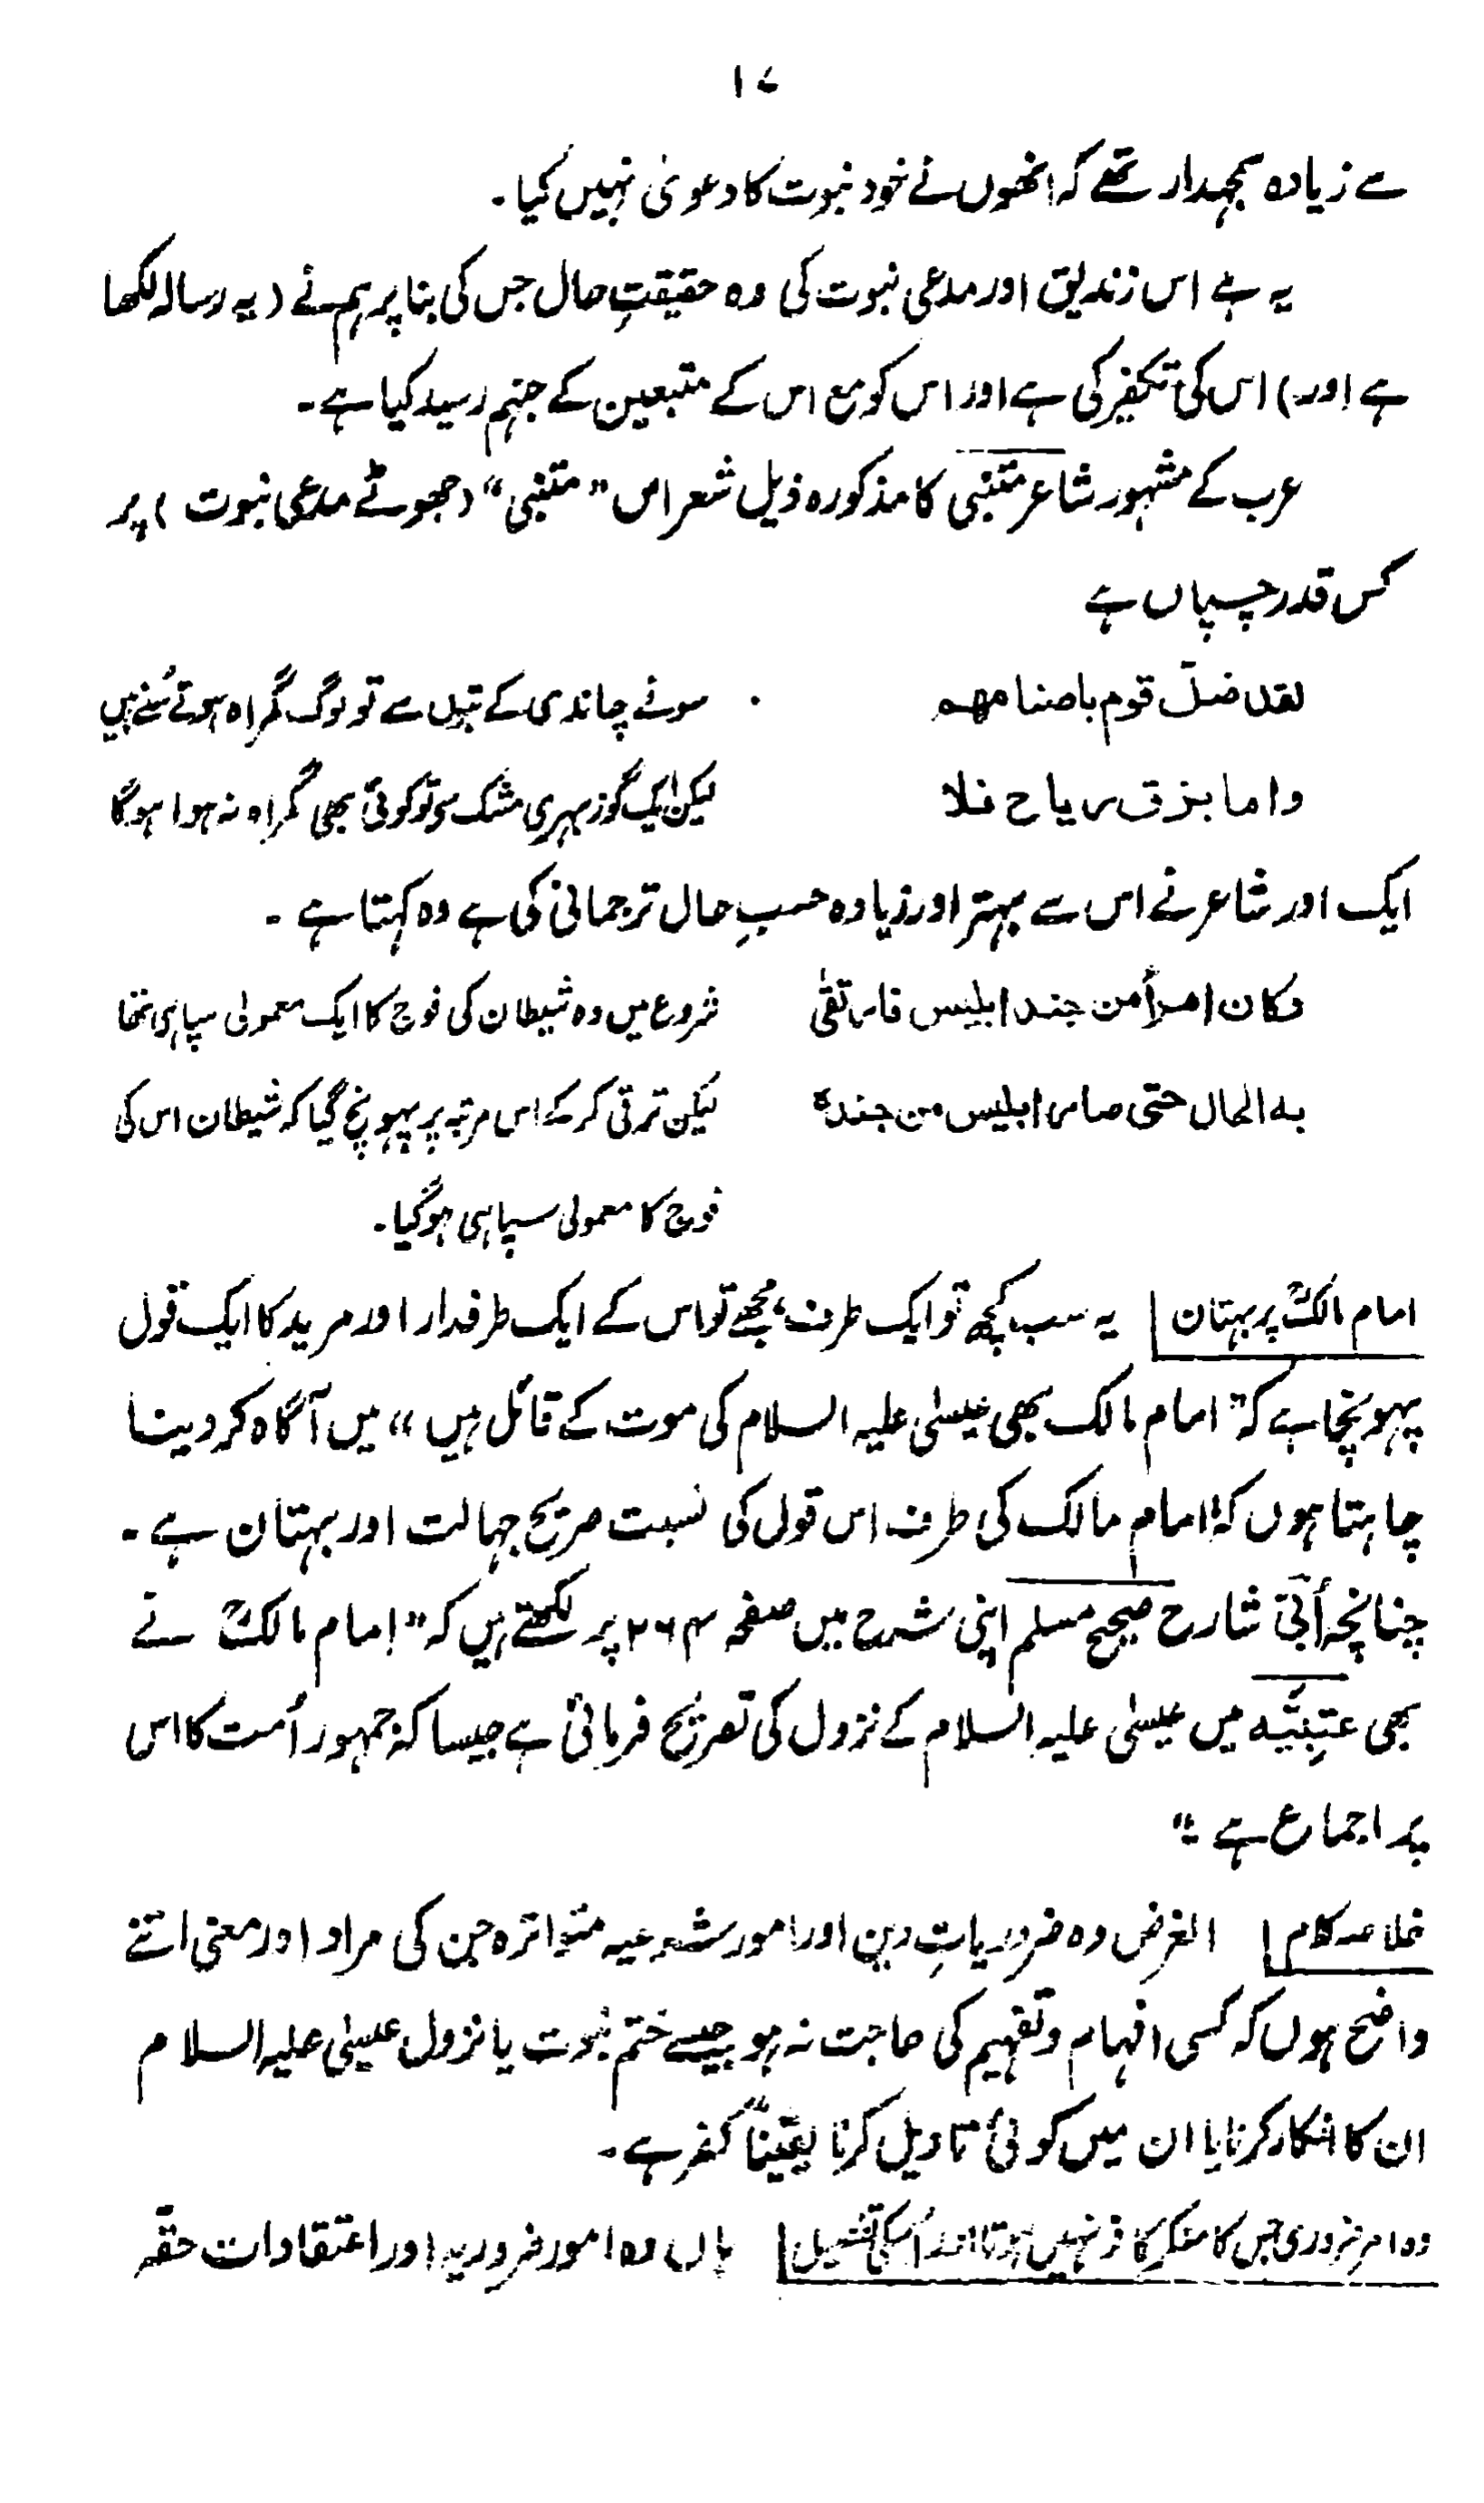 ۱۷
سے زیادہ سمجھدار تھے کہ انھوں نے خود نبوت کا دعویٰ نہیں کیا۔
یہ ہے اس زندیق اور مدعی نبوت کی وہ حقیقتِ حال جس کی بنا پر ہم نے (یہ رسالہ لکھا
ہے اور) اس کی تکفیر کی ہے اور اس کو مع اس کے متبعین کے جہنم رسید کیا ہے۔
عرب کے مشہور شاعر متنبی کا مذکورہ ذیل شعر اس "متنبی" (جھوٹے مدعی نبوت) پر
کس قدر چسپاں ہے
لقد ضل قوم باصنامھم . سونے چاندی کے بتوں سے تو لوگ گمراہ ہوتے سُنے ہیں
واما بزق ریاح فلا لیکن ایک گوز بھری مشک سے تو کوئی بھی گمراہ نہ ہوا ہوگا
ایک اور شاعر نے اس سے بہتر اور زیادہ حسبِ حال ترجمانی کی ہے وہ کہتا ہے۔
وکان امرأ من جند ابلیس فارتقیٰ شروع میں وہ شیطان کی فوج کا ایک معمولی سپاہی تھا
بہ الحال حتی صار ابلیس من جندہ لیکن ترقی کرکے اس مرتبہ پر پہونچ گیا کہ شیطان اس کی
فوج کا معمولی سپاہی ہوگیا۔
امام مالکؒ پر بہتان یہ سب کچھ تو ایک طرف، مجھے تو اس کے ایک طرفدار اور مرید کا ایک قول
پہونچا ہے کہ "امام مالک بھی عیسیٰ علیہ السلام کی موت کے قائل ہیں" میں آگاہ کر دینا
چاہتا ہوں کہ امام مالک کی طرف اس قول کی نسبت صریح جہالت اور بہتان ہے۔
چنانچہ اُبّی شارح صحیح مسلم اپنی شرح میں صفحہ ۲۶۴ پر لکھتے ہیں کہ "امام مالکؒ نے
بھی عتبیّہ میں عیسیٰ علیہ السلام کے نزول کی تصریح فرمائی ہے جیسا کہ جمہور اُمت کا اس
پر اجماع ہے۔"
خلاصہ کلام الغرض وہ ضروریاتِ دین اور امور شرعیہ متواترہ جن کی مراد اور معنی اتنے
واضح ہوں کہ کسی افہام و تفہیم کی حاجت نہ ہو جیسے ختم نبوت یا نزول عیسیٰ علیہ السلام
ان کا انکار کرنا یا ان میں کوئی تاویل کرنا یقیناً کفر ہے۔
وہ امر ضروری جس کا منکر کافر نہیں ہوتا اور اُسکی تمثیل ہاں وہ امور ضروریہ اور اعتقادات حقہ